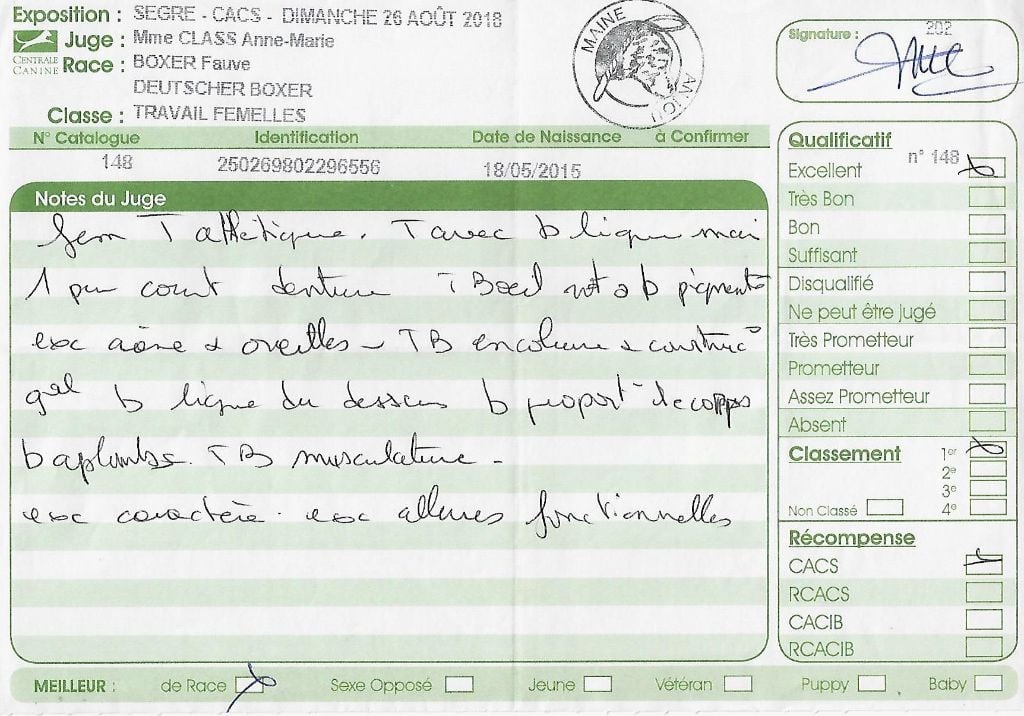 Exposition : SEGRE - CACS - DIMANCHE 26 AOÛT 2018
CENTRALE CANINE
Juge : Mme CLASS Anne-Marie
Race : BOXER Fauve
DEUTSCHER BOXER
Classe : TRAVAIL FEMELLES
MAINE ANJOU
Signature :
202
N° Catalogue Identification Date de Naissance à Confirmer
148 250269802296556 18/05/2015
Notes du Juge
T athlétique. T avec b ligne mais
1 peu court denture TB oeil b pigmenté
exc crâne & oreilles - TB encolure & construc°
gal b ligne du dessus b proport° de corps
b aplombs. TB musculature -
exc caractère. exc allures fonctionnelles
Qualificatif
n° 148
Excellent
Très Bon
Bon
Suffisant
Disqualifié
Ne peut être jugé
Très Prometteur
Prometteur
Assez Prometteur
Absent
Classement 1er
2e
3e
Non Classé 4e
Récompense
CACS
RCACS
CACIB
RCACIB
MEILLEUR : de Race Sexe Opposé Jeune Vétéran Puppy Baby